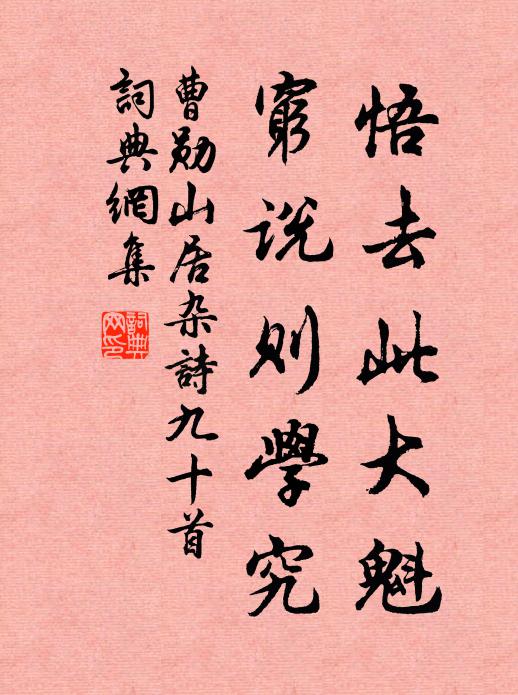 悟去此大魁
窮说则學究
曹勛山居杂詩九十首
詞典網集
詞典網印